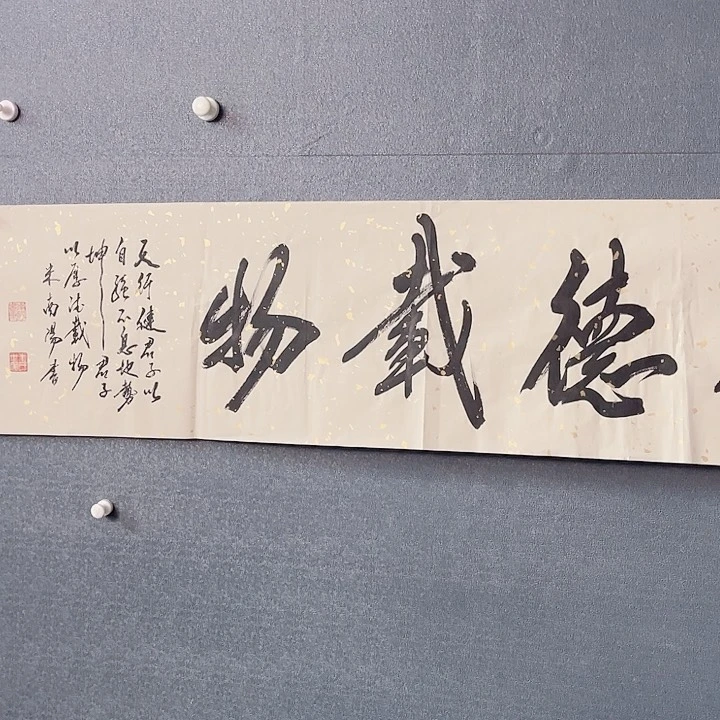 德載物
天行健君子以
自强不息地勢
坤君子
以厚德載物
米南陽書